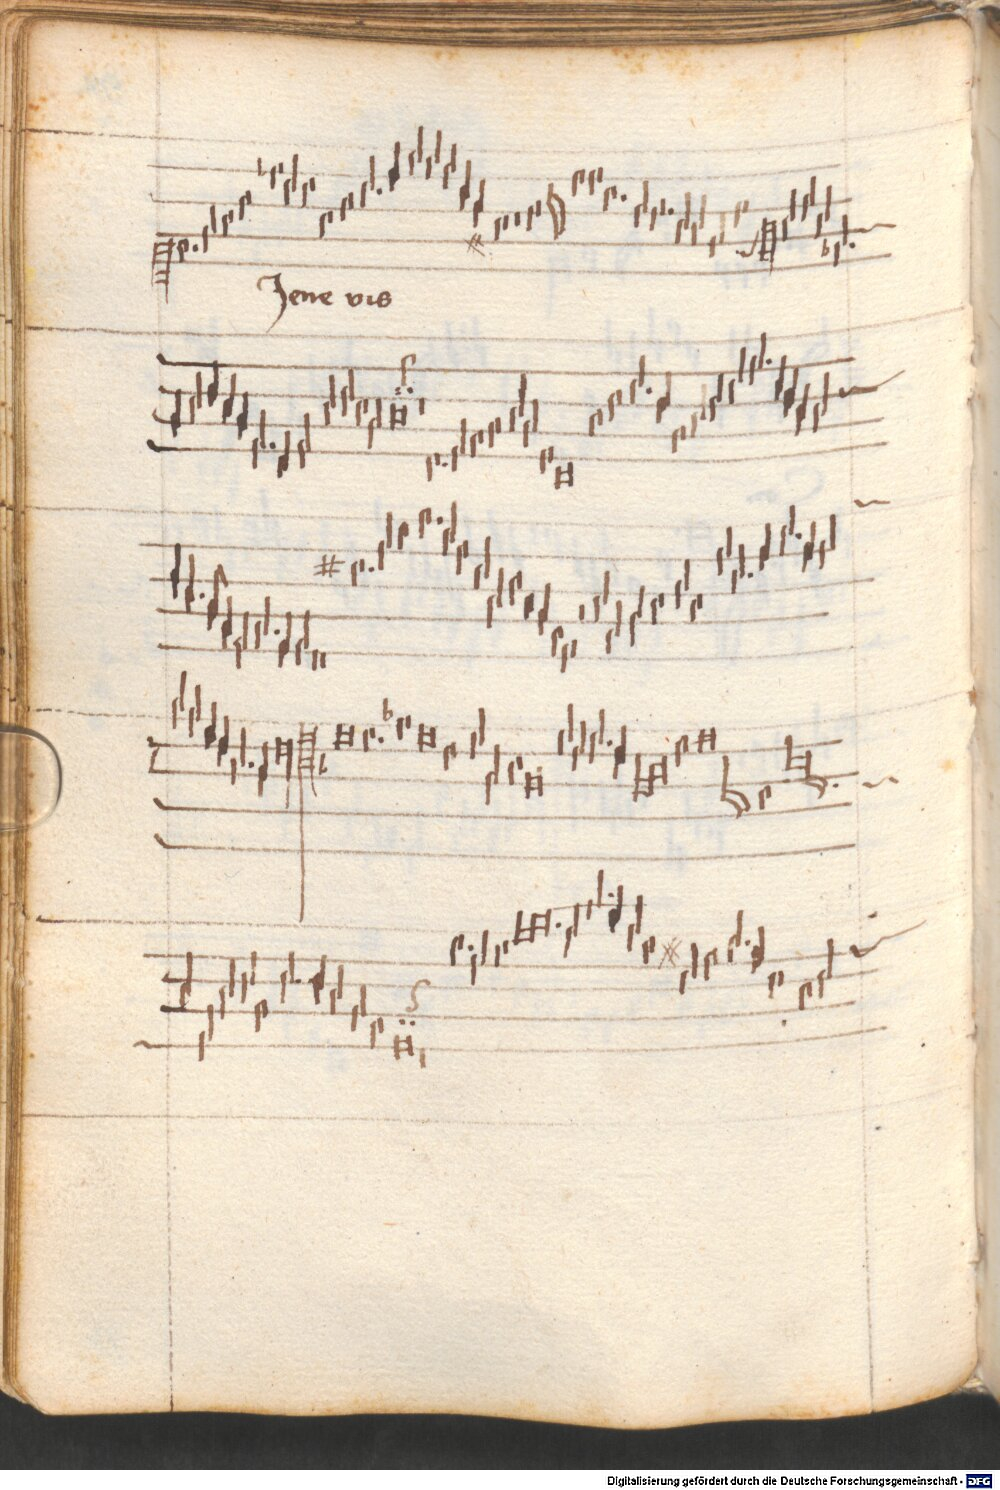 Jene vis
Digitalisierung gefördert durch die Deutsche Forschungsgemeinschaft - DFG